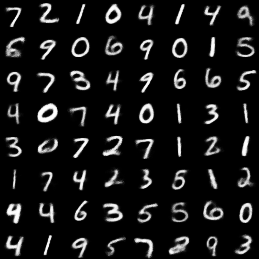 7 2 1 0 4 1 4 9
6 9 0 6 9 0 1 5
9 7 3 4 9 6 6 5
4 0 7 4 0 1 3 1
3 0 7 2 7 1 2 1
1 7 4 2 3 5 1 2
4 4 6 3 5 5 6 0
4 1 9 5 7 8 9 3